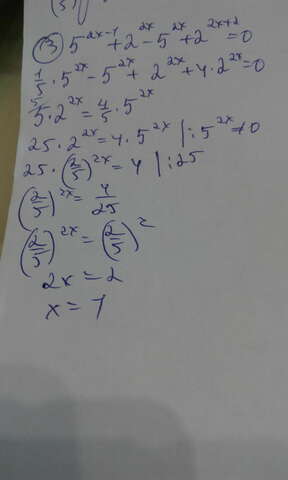 (3) 5^{2x-1}+2^{2x}-5^{2x}+2^{2x+2}=0
1/5·5^{2x}-5^{2x}+2^{2x}+4·2^{2x}=0
5·2^{2x}=4/5·5^{2x}
25·2^{2x}=4·5^{2x} |:5^{2x}≠0
25·(2/5)^{2x}=4 |:25
(2/5)^{2x}=4/25
(2/5)^{2x}=(2/5)^2
2x=2
x=1